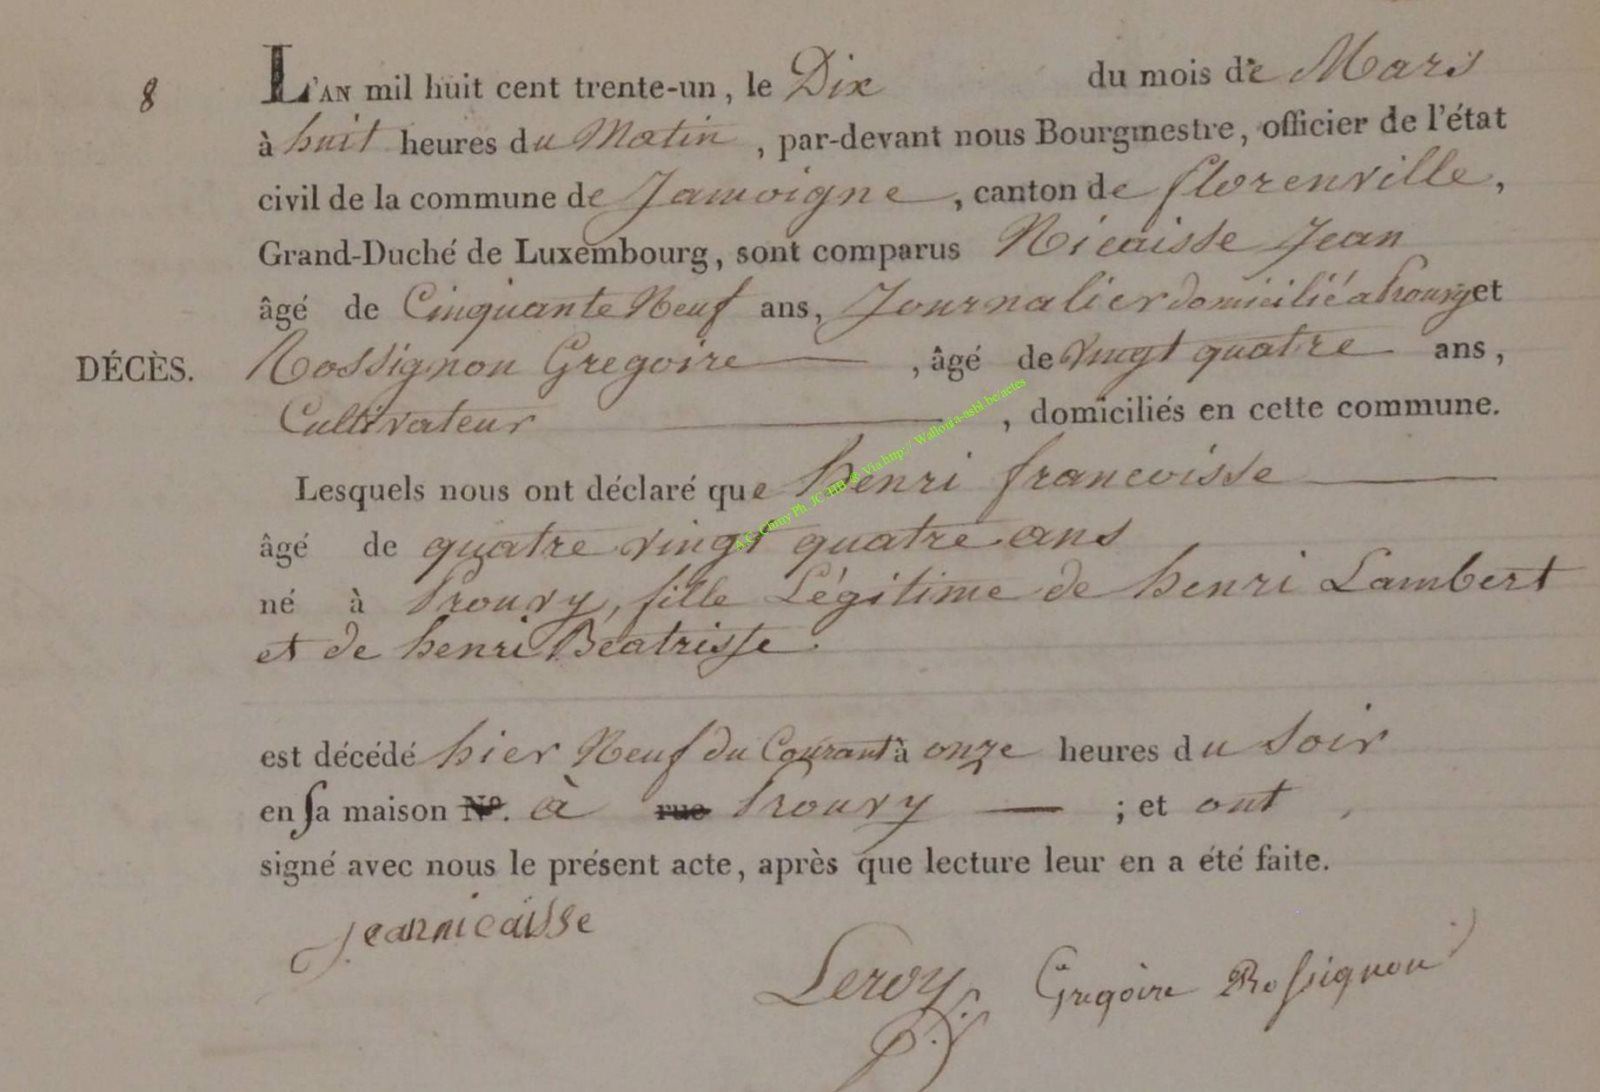 8
L'AN mil huit cent trente-un, le Dix du mois de Mars
à huit heures du Matin, par-devant nous Bourgmestre, officier de l'état
civil de la commune de Jamoigne, canton de florenville,
Grand-Duché de Luxembourg, sont comparus Nicaisse Jean
âgé de Cinquante Neuf ans, Journalier domicilié a prouvy et
DÉCÈS. Rossignon Gregoire, âgé de vingt quatre ans,
Cultivateur, domiciliés en cette commune.
Lesquels nous ont déclaré que henri francoisse
âgé de quatre vingt quatre ans
né à Prouvy, fille Légitime de henri Lambert
et de henri Béatrisse.
est décédé hier Neuf du Courant à onze heures du Soir
en sa maison N°. à rue Prouvy ; et ont,
signé avec nous le présent acte, après que lecture leur en a été faite.
Jean nicaisse
Leroy
Gregoire Rossignon
Via http:// Wallonia-asbl.be/actes